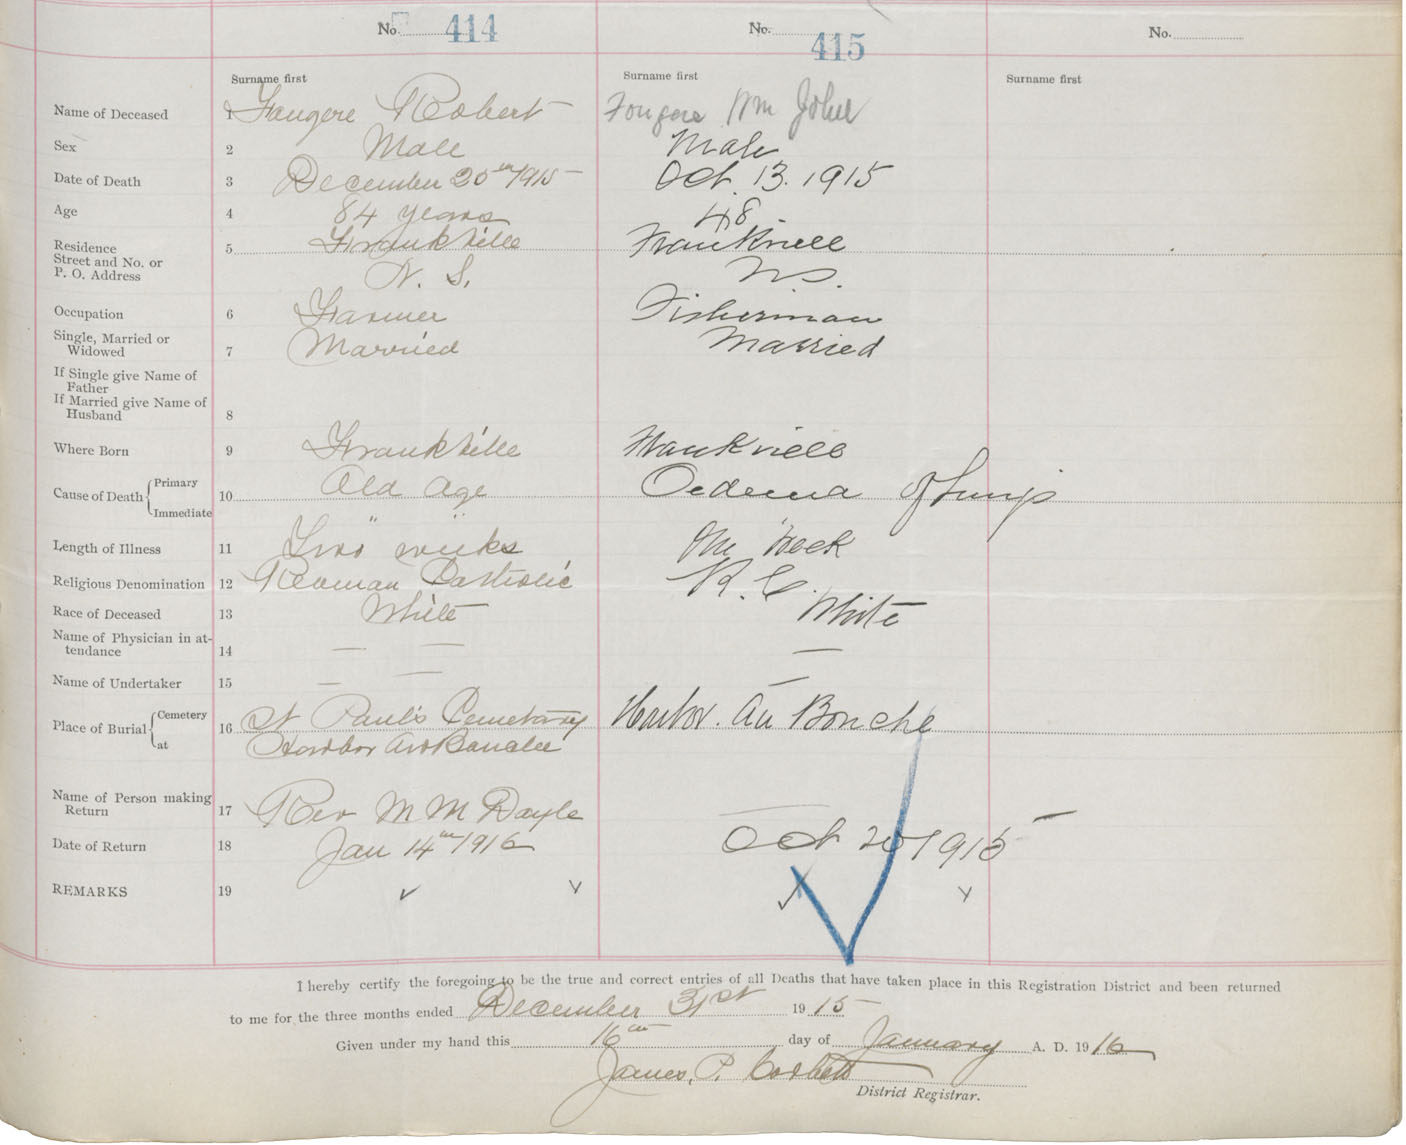 No. 414 No. 415 No.
Surname first Surname first Surname first
Name of Deceased 1 Faugere Robert Fougere Wm John
Sex 2 Male Male
Date of Death 3 December 20th 1915 Oct. 13. 1915
Age 4 84 years 48
Residence 5 Frankville Frankville
Street and No. or
P. O. Address N. S. N.S.
Occupation 6 Farmer Fisherman
Single, Married or
Widowed 7 Married Married
If Single give Name of
Father
If Married give Name of
Husband 8
Where Born 9 Frankville Frankville
Cause of Death { Primary
10 Old Age Oedema of Lungs
Immediate " "
Length of Illness 11 Two weeks One Week
Religious Denomination 12 Roman Catholic R. C.
Race of Deceased 13 White White
Name of Physician in at-
tendance 14 — — —
Name of Undertaker 15 — — —
Place of Burial { Cemetery 16 St Paul's Cemetary Harbor. Au Bouche
at Harbor Au Bouche
Name of Person making
Return 17 Rev M M Doyle —
Date of Return 18 Jan 14th 1916 Oct 20 1915
REMARKS 19
I hereby certify the foregoing to be the true and correct entries of all Deaths that have taken place in this Registration District and been returned
to me for the three months ended December 31st 1915
Given under my hand this 16th day of January A. D. 1916
James. P. Corbett
District Registrar.